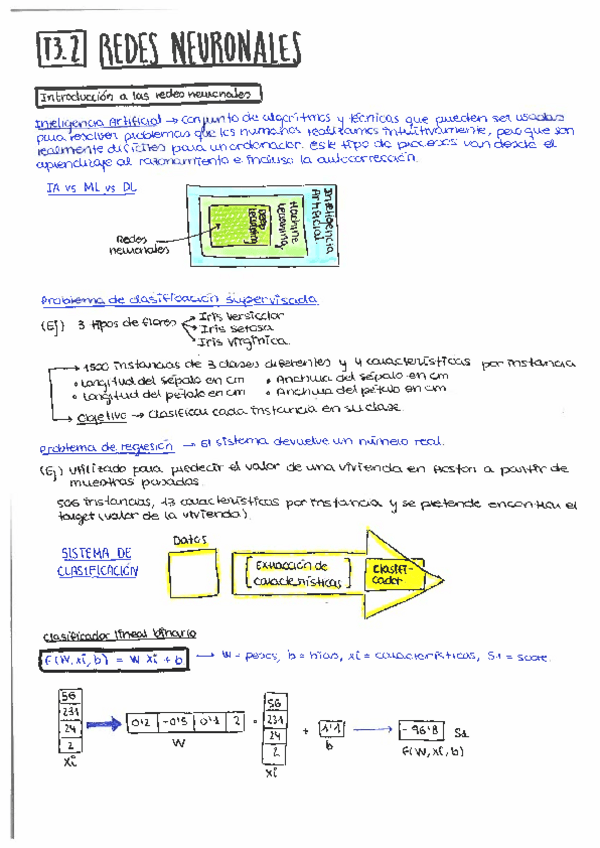 T3.2 REDES NEURONALES
Introducción a las redes neuronales
Inteligencia Artificial → conjunto de algoritmos y técnicas que pueden ser usadas
para resolver problemas que los humanos realizamos intuitivamente, pero que son
realmente difíciles para un ordenador. Este tipo de procesos van desde el
aprendizaje al razonamiento e incluso la autocorrección.
IA vs ML vs DL
Inteligencia Artificial.
Machine Learning.
Deep Learning
Redes
neuronales
Problema de clasificación supervisada
(Ej) 3 tipos de flores
Iris versicolor
Iris setosa
Iris virginica.
→ 1500 instancias de 3 clases diferentes y 4 características por instancia
• Longitud del sépalo en cm • Anchura del sépalo en cm
• Longitud del pétalo en cm • Anchura del pétalo en cm
→ Objetivo → clasificar cada instancia en su clase.
Problema de regresión → El sistema devuelve un número real.
(Ej) Utilizado para predecir el valor de una vivienda en Boston a partir de
muestras pasadas.
506 instancias, 13 características por instancia y se pretende encontrar el
target (valor de la vivienda).
SISTEMA DE
CLASIFICACIÓN
Datos
Extracción de
características
Clasifi-
cador
Clasificador lineal binario
F(W, xi, b) = W xi + b → W = pesos, b = bias, xi = características, S1 = score.
56
231
24
2
xi
0'2 -0'5 0'1 2
W
56
231
24
2
xi
+ 1'1
b
-96'8 S1
F(W, xi, b)